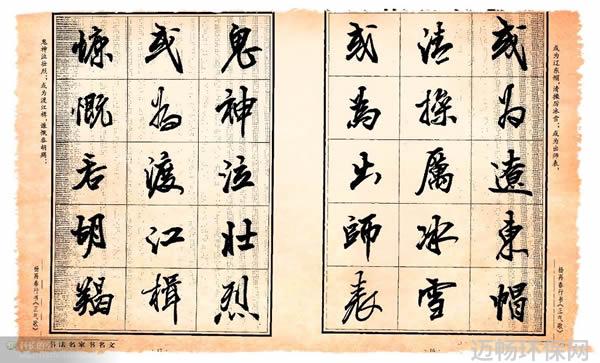 成为辽东帽，清操厉冰雪；成为出师表，
杨再春行书《正气歌》
或为遼東帽
清操厲冰雪
或為出師表
· 16 ·
鬼神泣壯烈
或為渡江楫
慷慨吞胡羯
鬼神泣壮烈；成为渡江楫，慷慨吞胡羯；
杨再春行书《正气歌》
· 17 ·
书法名家书名文
迈畅环保网